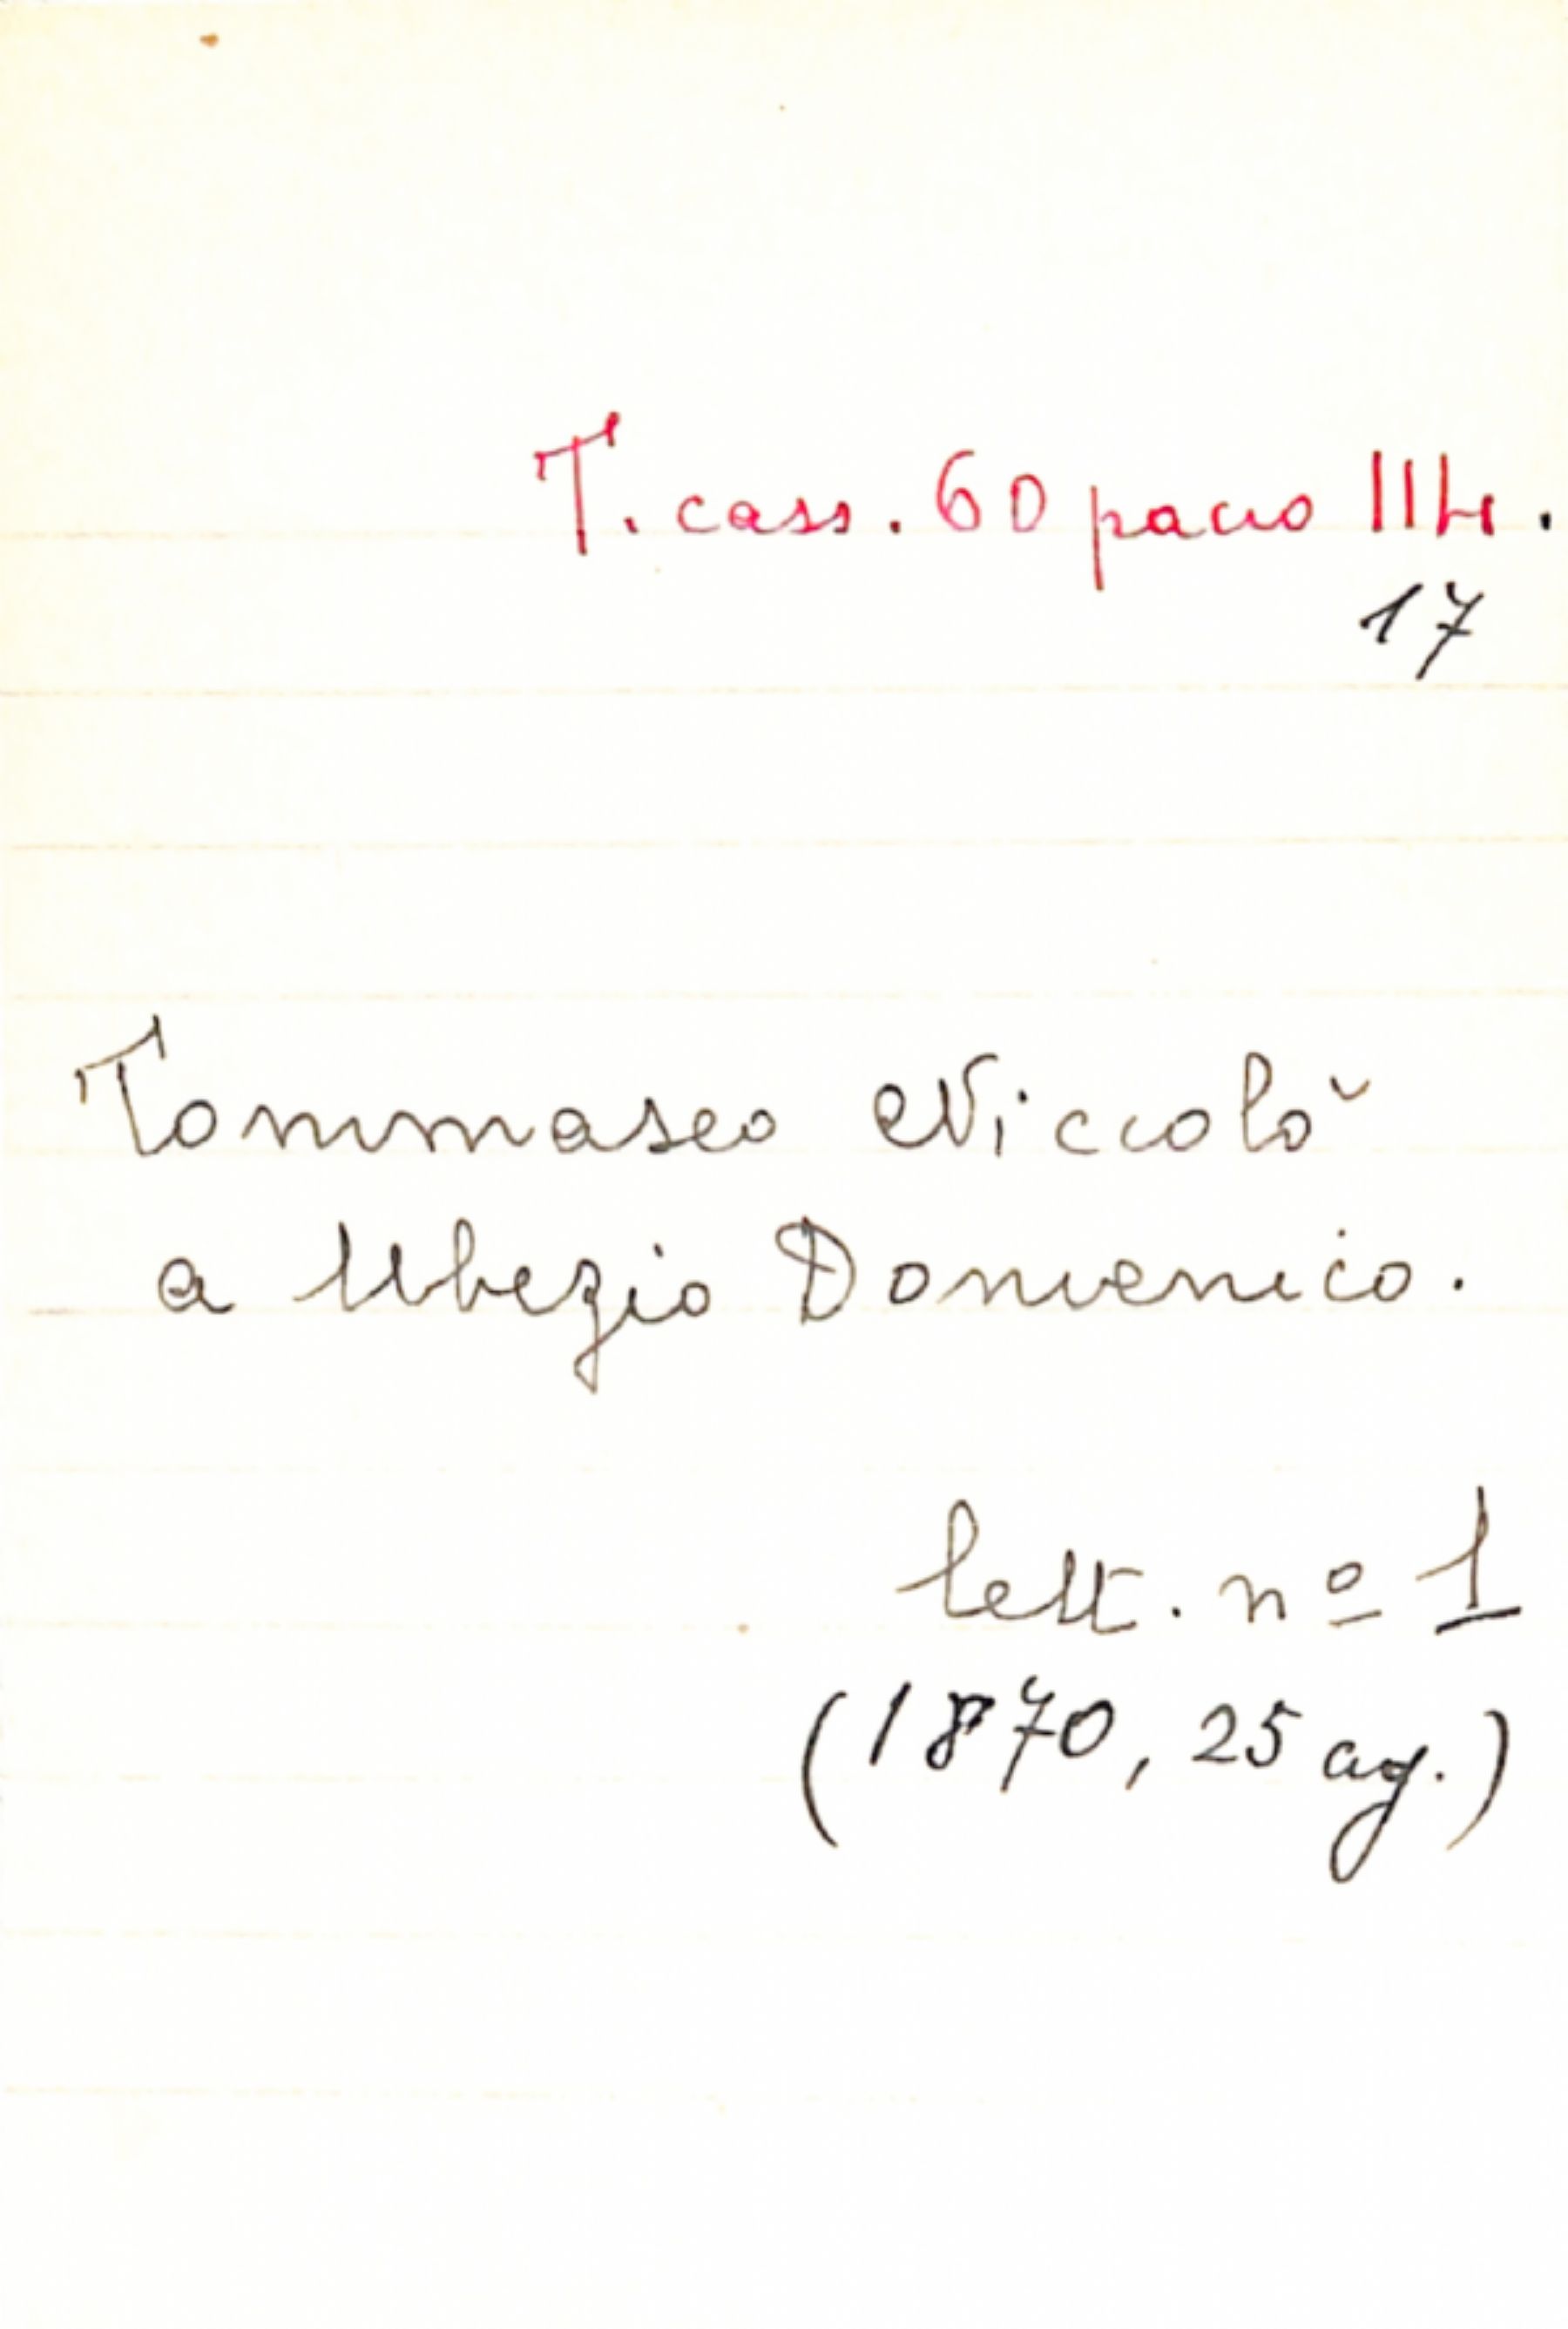 T. cass. 60 pacco 114.
17
Tommaseo Niccolò
a Ubezio Domenico.
lett. nº 1
(1870, 25 ag.)